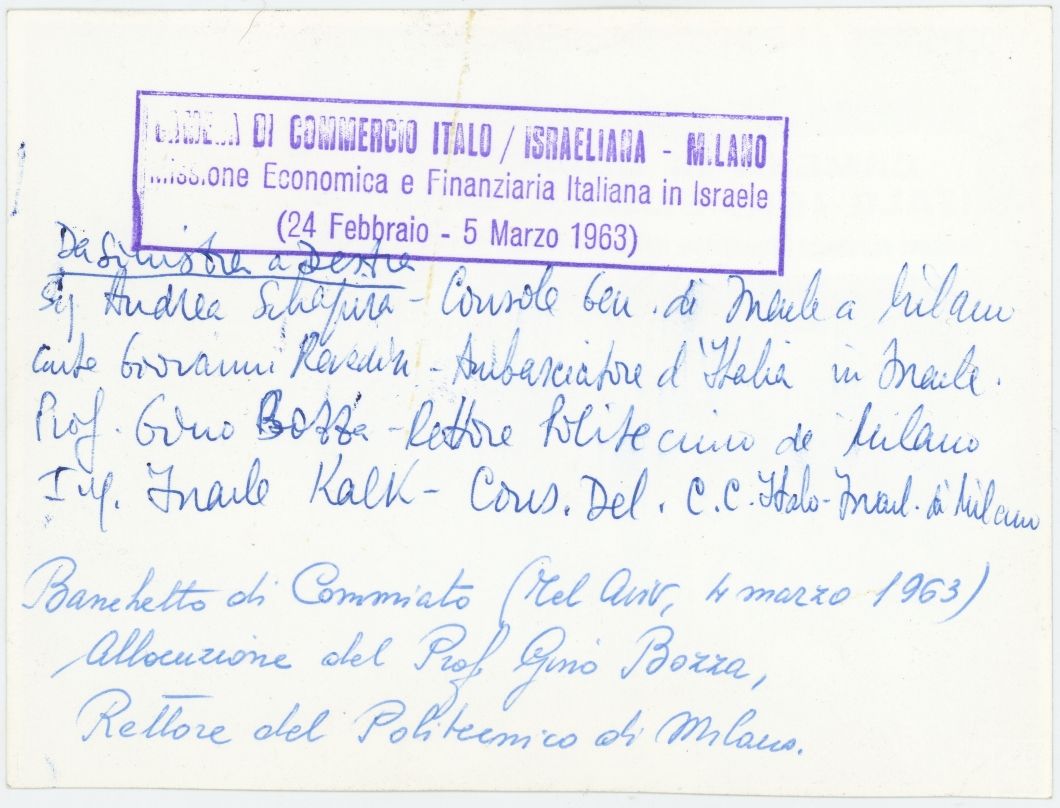 CAMERA DI COMMERCIO ITALO / ISRAELIANA - MILANO
Missione Economica e Finanziaria Italiana in Israele
(24 Febbraio - 5 Marzo 1963)
Da Sinistra a Destra
Sig Andrea Schapira - Console Gen. di Israele a Milano
Conte Giovanni Revedin - Ambasciatore d'Italia in Israele.
Prof. Gino Bozza - Rettore Politecnico di Milano
Ing. Israele Kalk - Cons. Del. C.C. Italo-Israel. di Milano
Banchetto di Commiato (Tel Aviv, 4 marzo 1963)
Allocuzione del Prof. Gino Bozza,
Rettore del Politecnico di Milano.